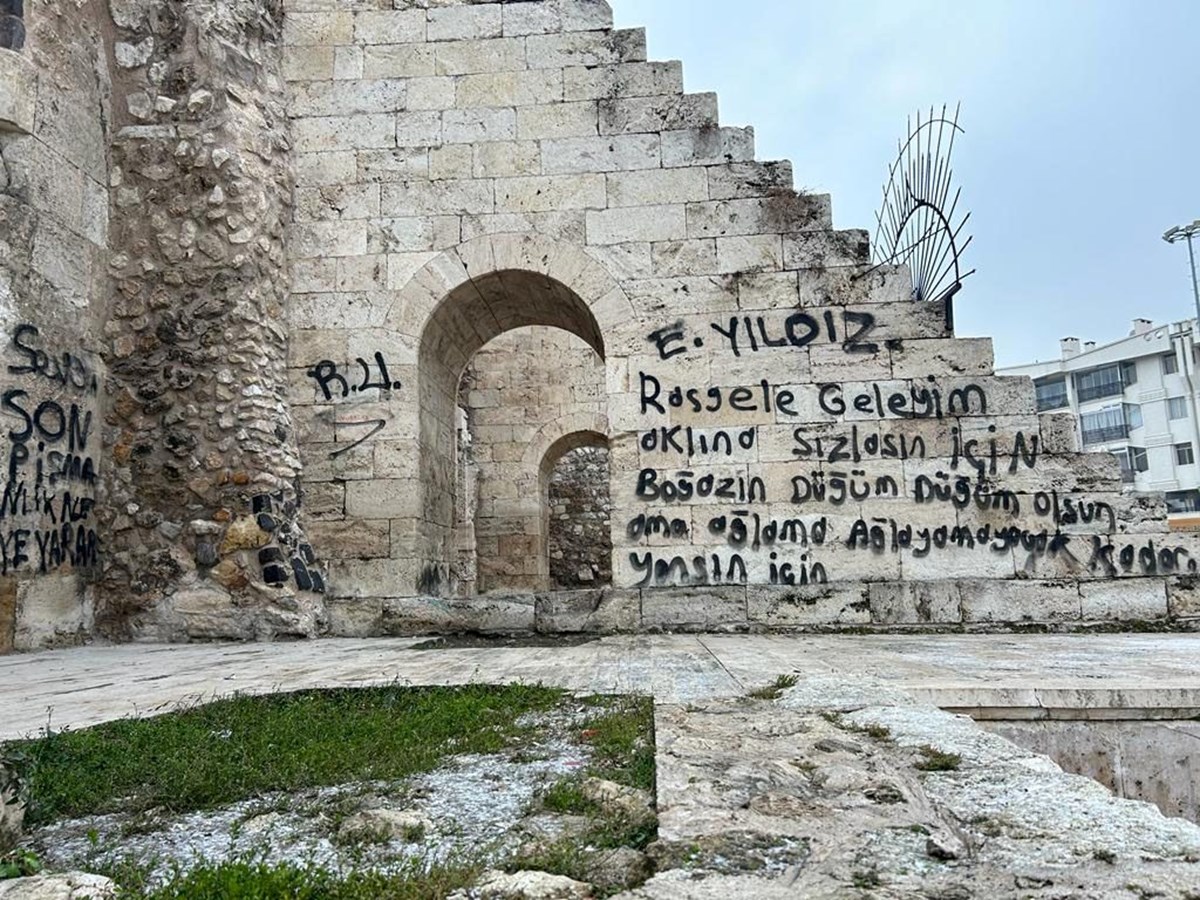 SON
PiŞMA
NLIK NE
YE YARAR
R.U.
E. YILDIZ.
Rasgele Geleyim
aklına Sızlasın İçiN
Boğazın Düğüm Düğüm Olsun
ama ağlama Ağlayamayacak kadar
Yansın için